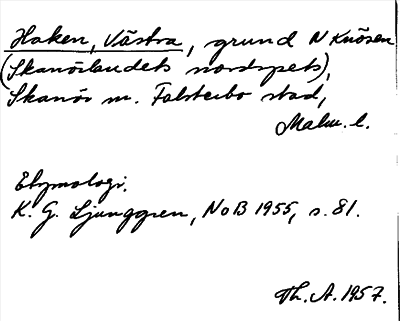 Haken, Västra, grund N Knösen
(Skanörlandets nordspets),
Skanör m. Falsterbo stad,
Malm. l.
Etymologi.
K. G. Ljunggren, NoB 1955, s. 81.
Th. A. 1957.